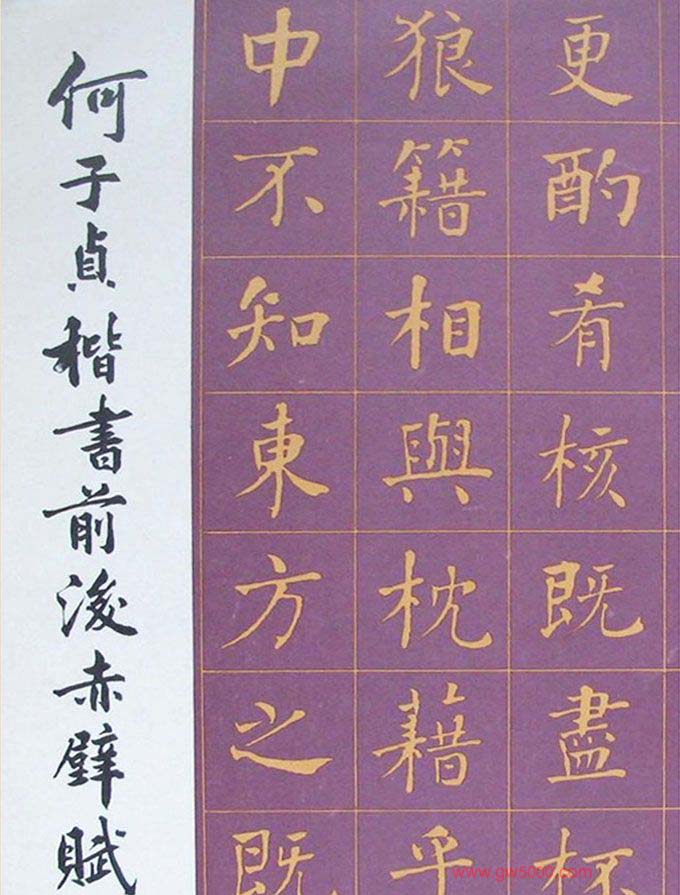 更酌肴核既盡杯
狼籍相與枕藉乎
中不知東方之既
何子貞楷書前後赤壁賦
www.gw5000.com